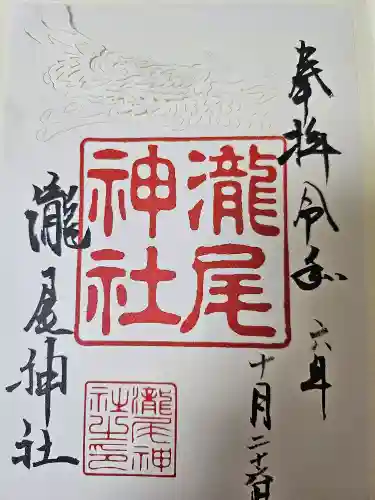 奉拝 令和六年
十月二十六日
瀧尾
神社
瀧尾神社
瀧尾神
社之印